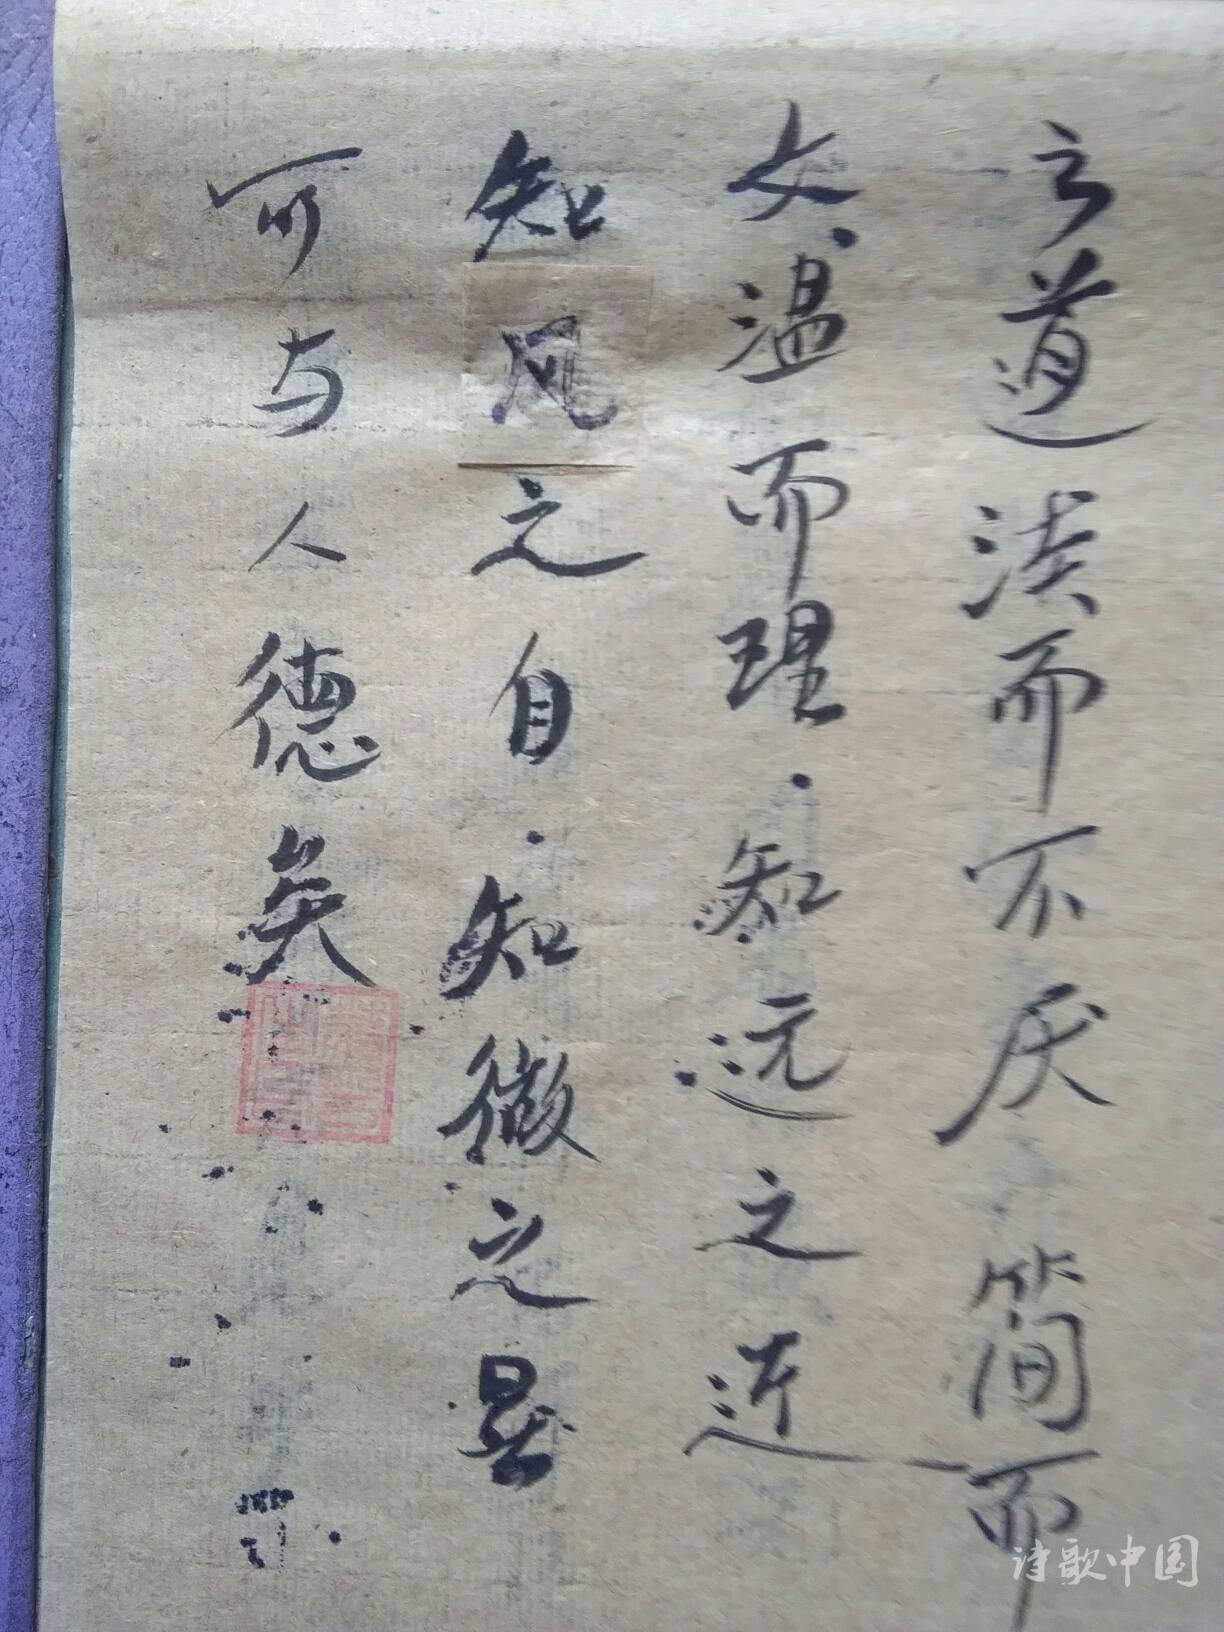 之道淡而不厌简而
文温而理.知远之近
知风之自.知微之显
可与人德矣
诗歌中国